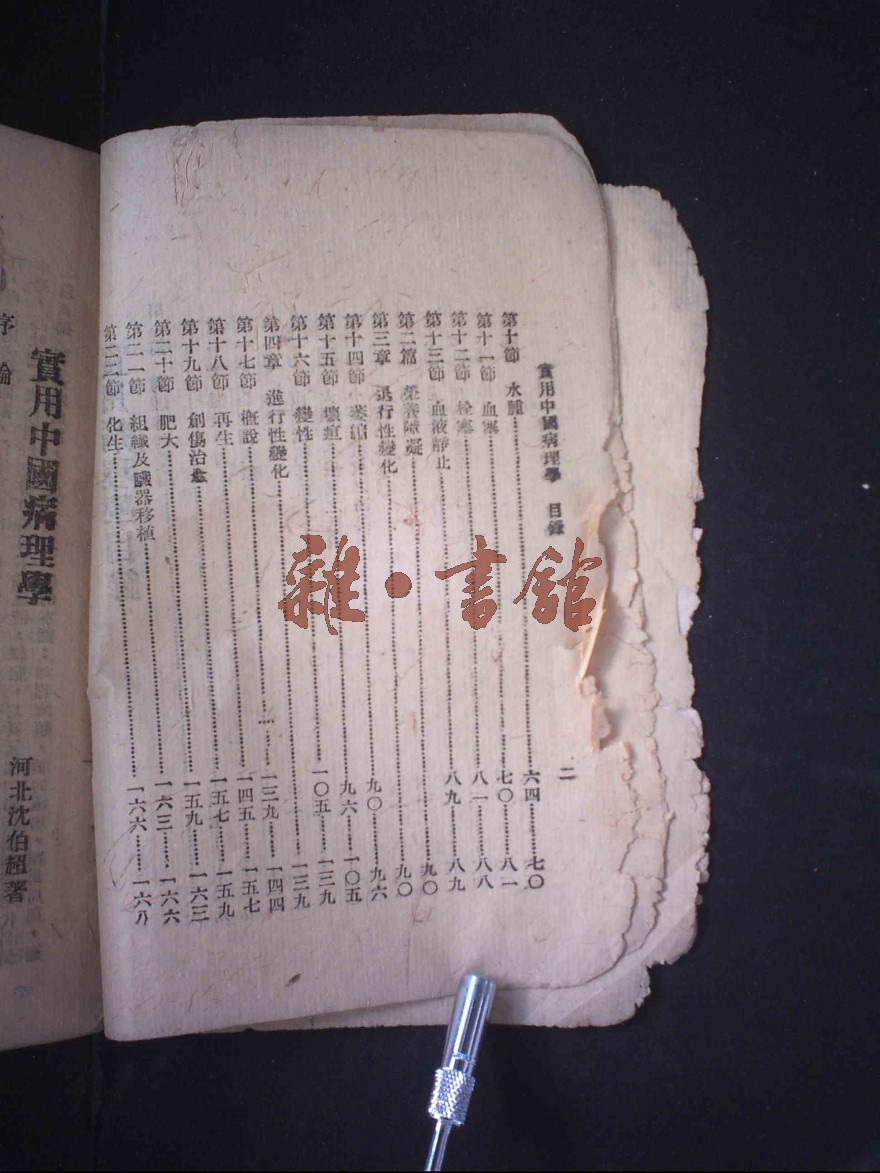 實用中國病理學 目錄 二
第十節 水腫……六四……七〇
第十一節 血塞……七〇……八一
第十二節 栓塞……八一……八八
第十三節 血液靜止……八九……八九
第二篇 榮養障凝……九〇
第三章 退行性變化……九〇
第十四節 萎縮……九〇……九六
第十五節 壞疽……九六……一〇五
第十六節 變性……一〇五……一三九
第四章 進行性變化……一三九
第十七節 概說……一三九……一四四
第十八節 再生……一四五……一五七
第十九節 創傷治愈……一五七……一五九
第二十節 肥大……一五九……一六三
第二一節 組織及臟器移植……一六三……一六六
第二二節 化生……一六六……一六八
實用中國病理學
河北沈伯超著
序論
雜·書館